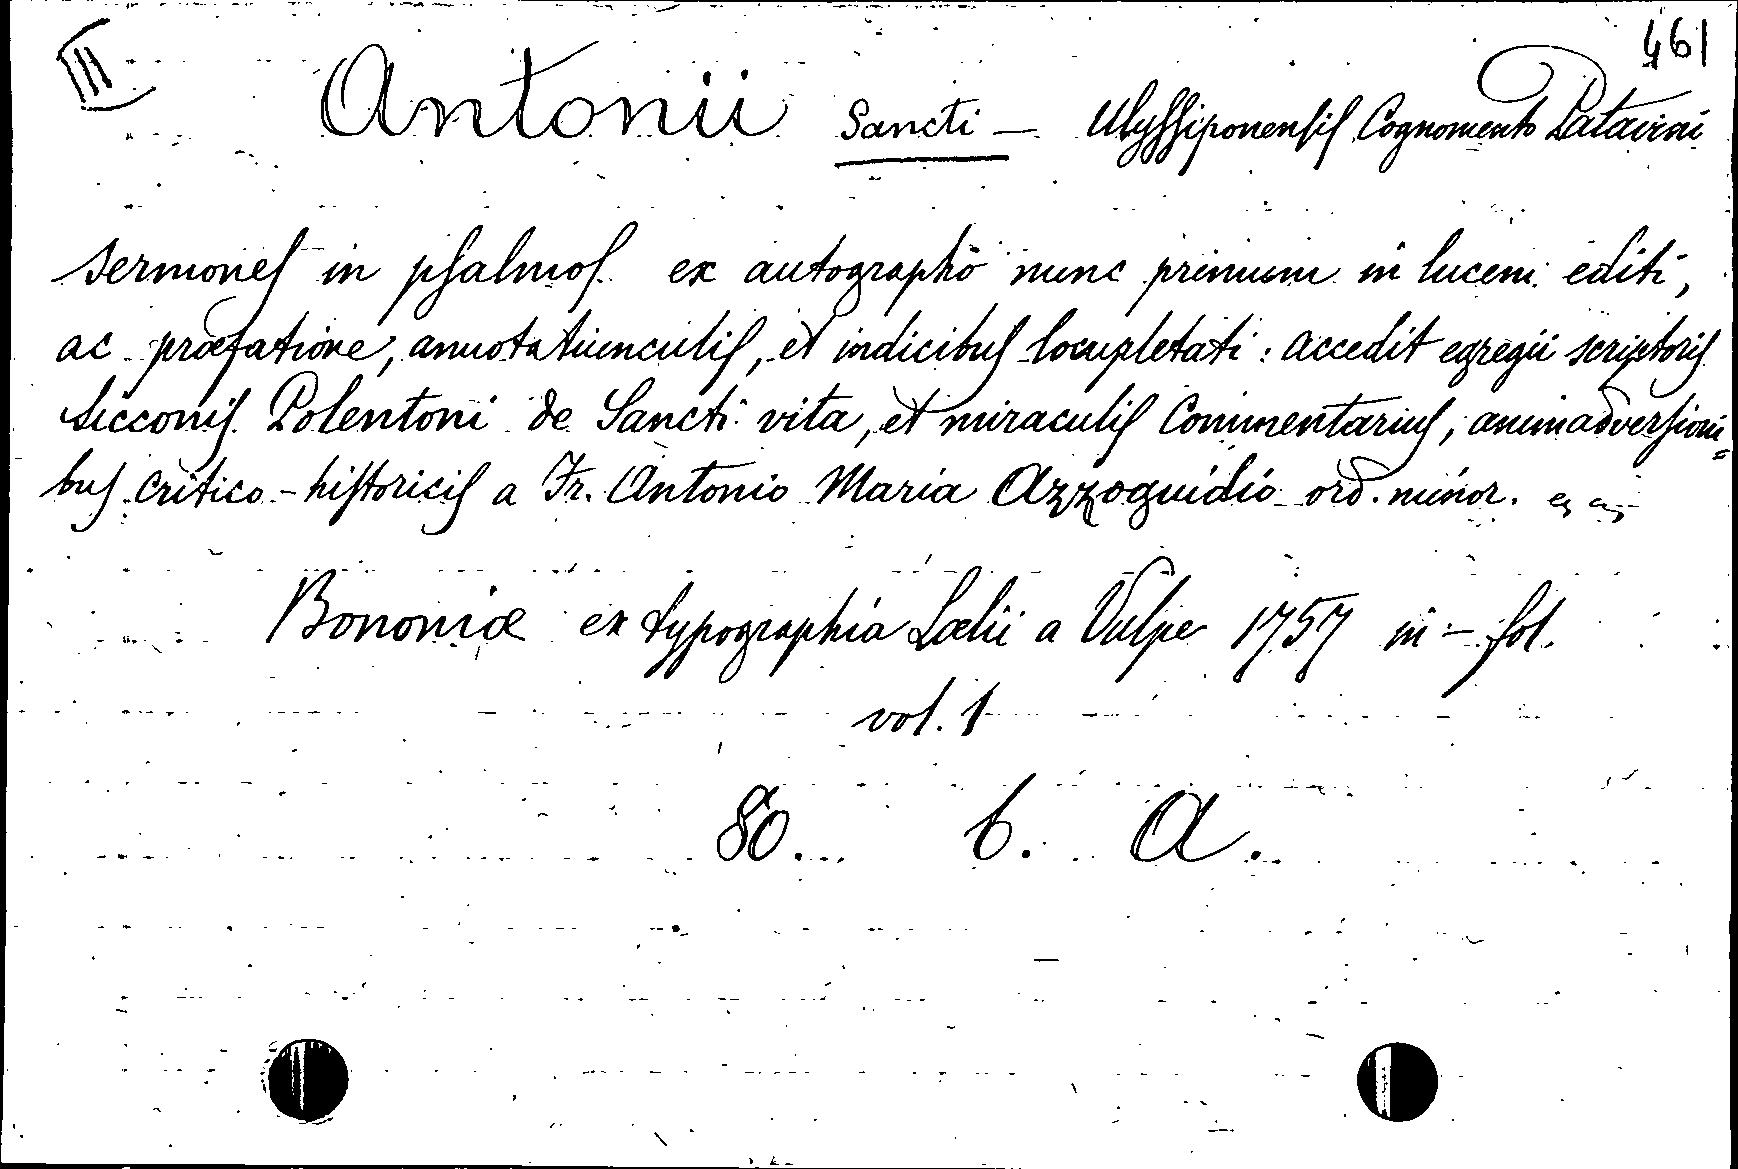 III
461
Antonii Sancti — Ulyssiponensis Cognomento Patavini
Sermones in psalmos ex autographo nunc primum in lucem editi,
ac præfatione, annotatiunculis, et indicibus locupletati: accedit egregii scriptoris
Sicconis Polentoni de Sancti vita, et miraculis Commentarius, animadversioni=
bus critico-historicis a Fr. Antonio Maria Azzoguidio ord. minor.
Bononiæ ex typographia Lælii a Vulpe 1757 in-fol.
vol. 1
80. 6. A.